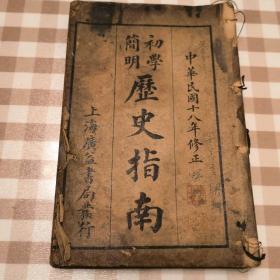 中華民國十八年修正
初學
簡明
歷史指南
上海廣益書局發行